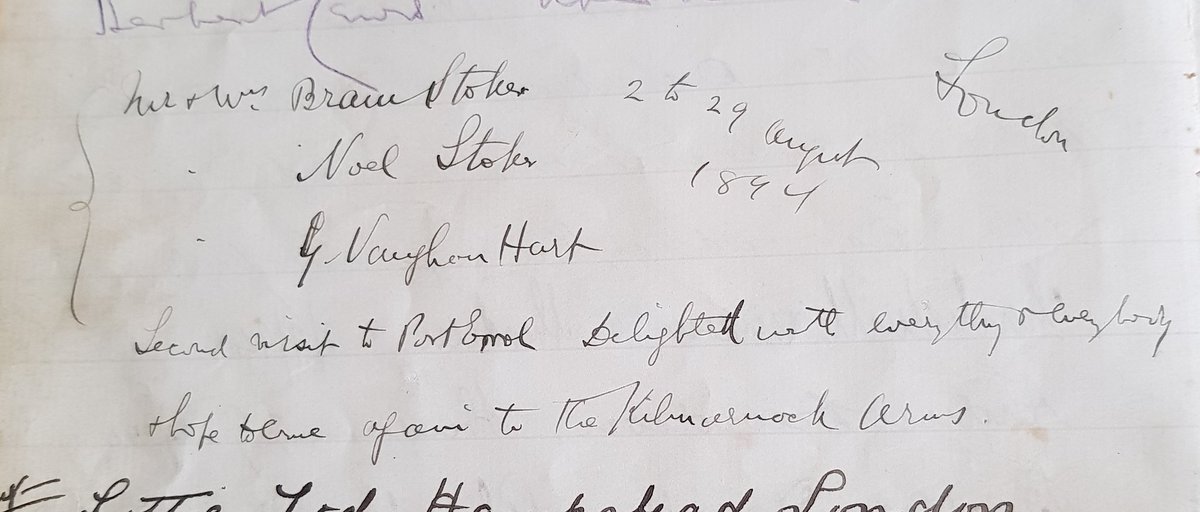 Herbert
Mr & Mrs Bram Stoker 2 to 29 August 1894 London
" Noel Stoker
" G Vaughan Hart
Second visit to Port Errol Delighted with everything & everybody
& hope to come again to the Kilmarnock Arms.
London